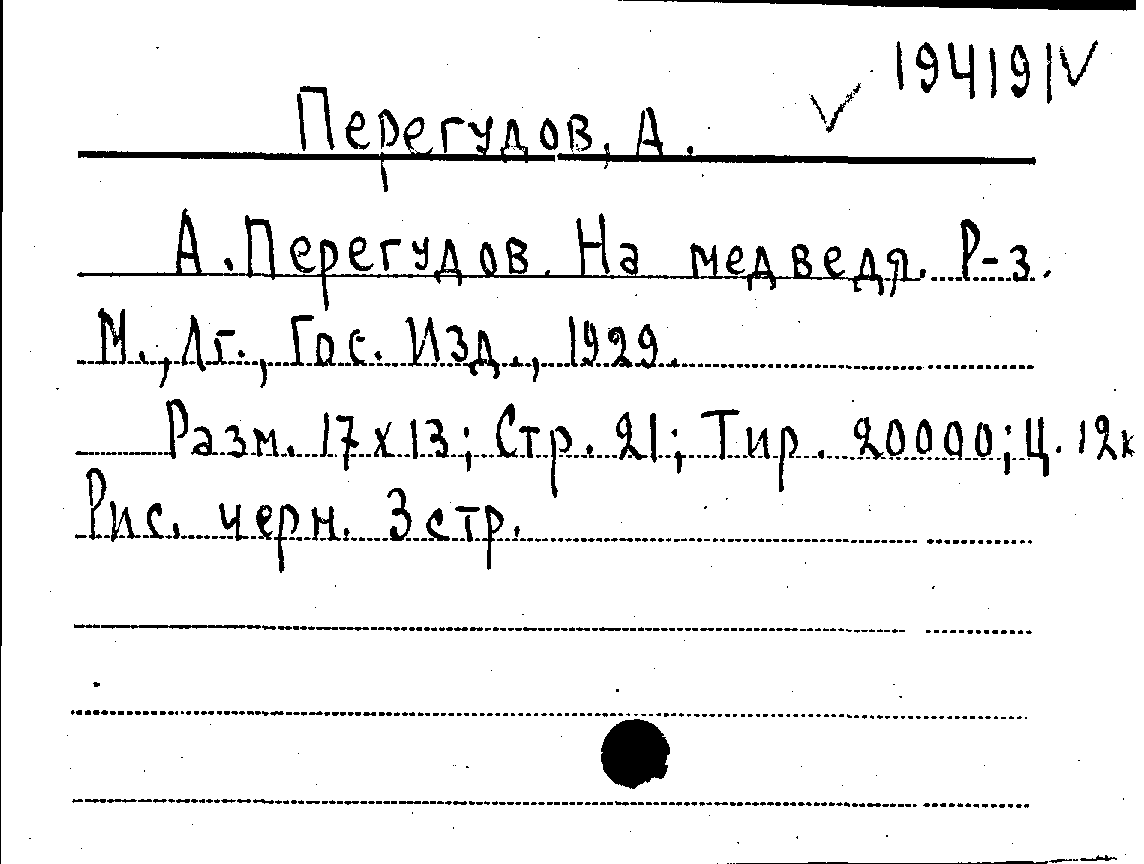 19419/V
Перегудов, А.
А. Перегудов. На медведя. Р-з.
М., Лг., Гос. Изд., 1929.
Разм. 17х13; Стр. 21; Тир. 20000; Ц. 12к
Рис. черн. 3 стр.